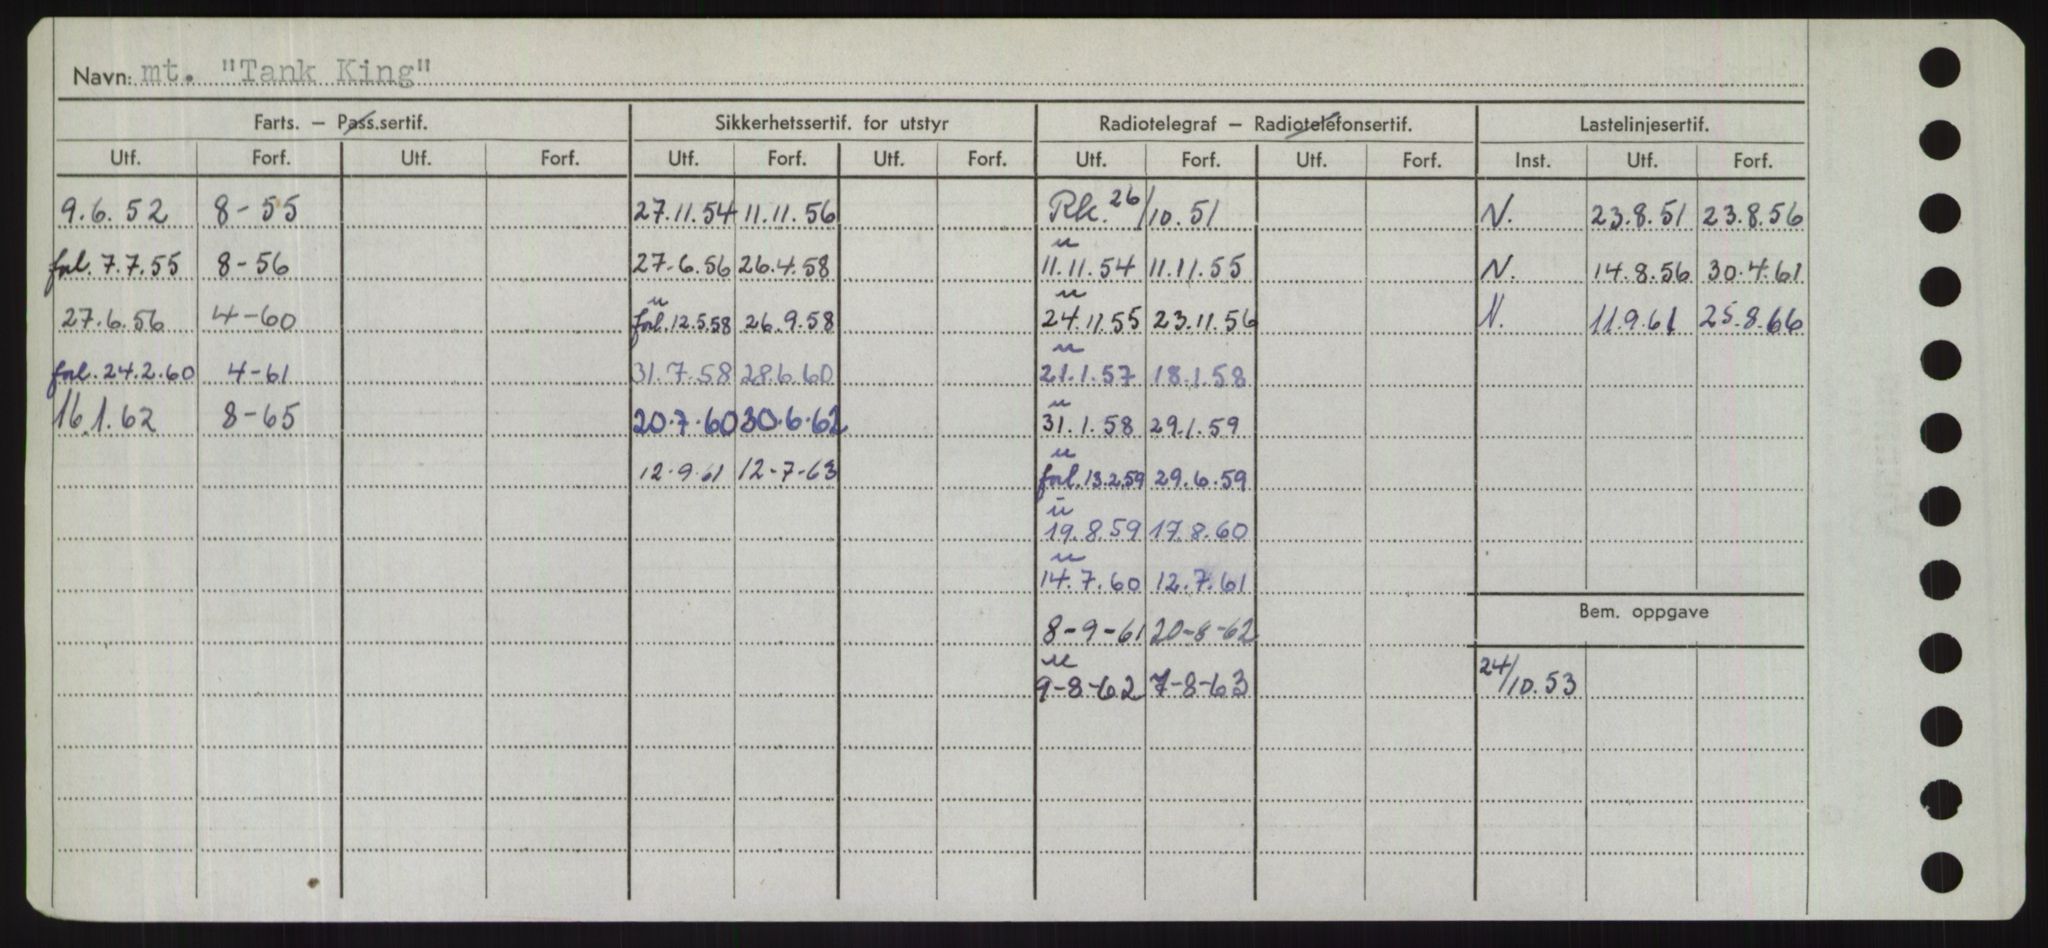 Navn: mt. "Tank King"
Farts. – Pass.sertif. Sikkerhetssertif. for utstyr Radiotelegraf – Radiotelefonsertif. Lastelinjesertif.
Utf. Forf. Utf. Forf. Utf. Forf. Utf. Forf. Utf. Forf. Utf. Forf. Inst. Utf. Forf.
9.6.52 8-55 27.11.54 11.11.56 Rk. 26/10.51 N. 23.8.51 23.8.56
u
forl. 7.7.55 8-56 27-6.56 26.4.58 11.11.54 11.11.55 N. 14.8.56 30.4.61
u u
27.6.56 4-60 forl. 12.5.58 26.9.58 24.11.55 23.11.56 N. 11.9.61 25.8.66
u
forl. 24.2.60 4-61 31.7.58 28.6.60 21.1.57 18.1.58
u
16.1.62 8-65 20.7.60 30.6.62 31.1.58 29.1.59
u
12.9.61 12-7-63 forl. 13.2.59 29.6.59
u
19.8.59 17.8.60
u
14.7.60 12.7.61
Bem. oppgave
8-9-61 20-8-62
u
9-8-62 7-8-63 24/10.53